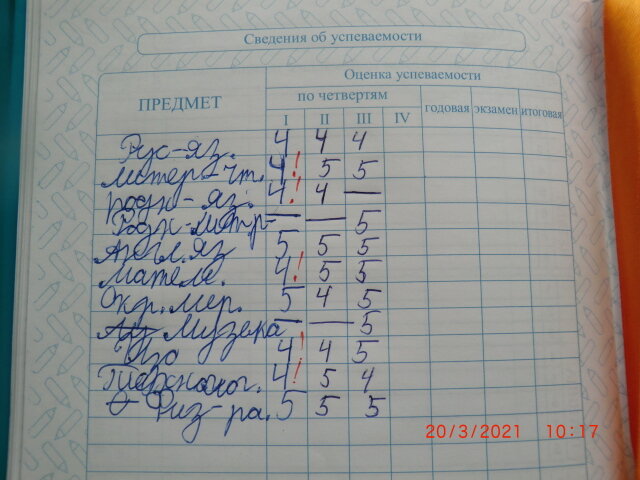 Сведения об успеваемости
ПРЕДМЕТ
Оценка успеваемости
по четвертям
годовая экзамен итоговая
I II III IV
Рус-яз. 4 4 4
Литер-чт. 4! 5 5
родн-яз. 4! 4 —
Родн-литр- — — 5
Англ.яз 5 5 5
Матем. 4! 5 5
Окр.мир. 5 4 5
Музыка — — 5
Изо 4! 4 5
Технолог. 4! 5 4
Физ-ра. 5 5 5
20/3/2021 10:17